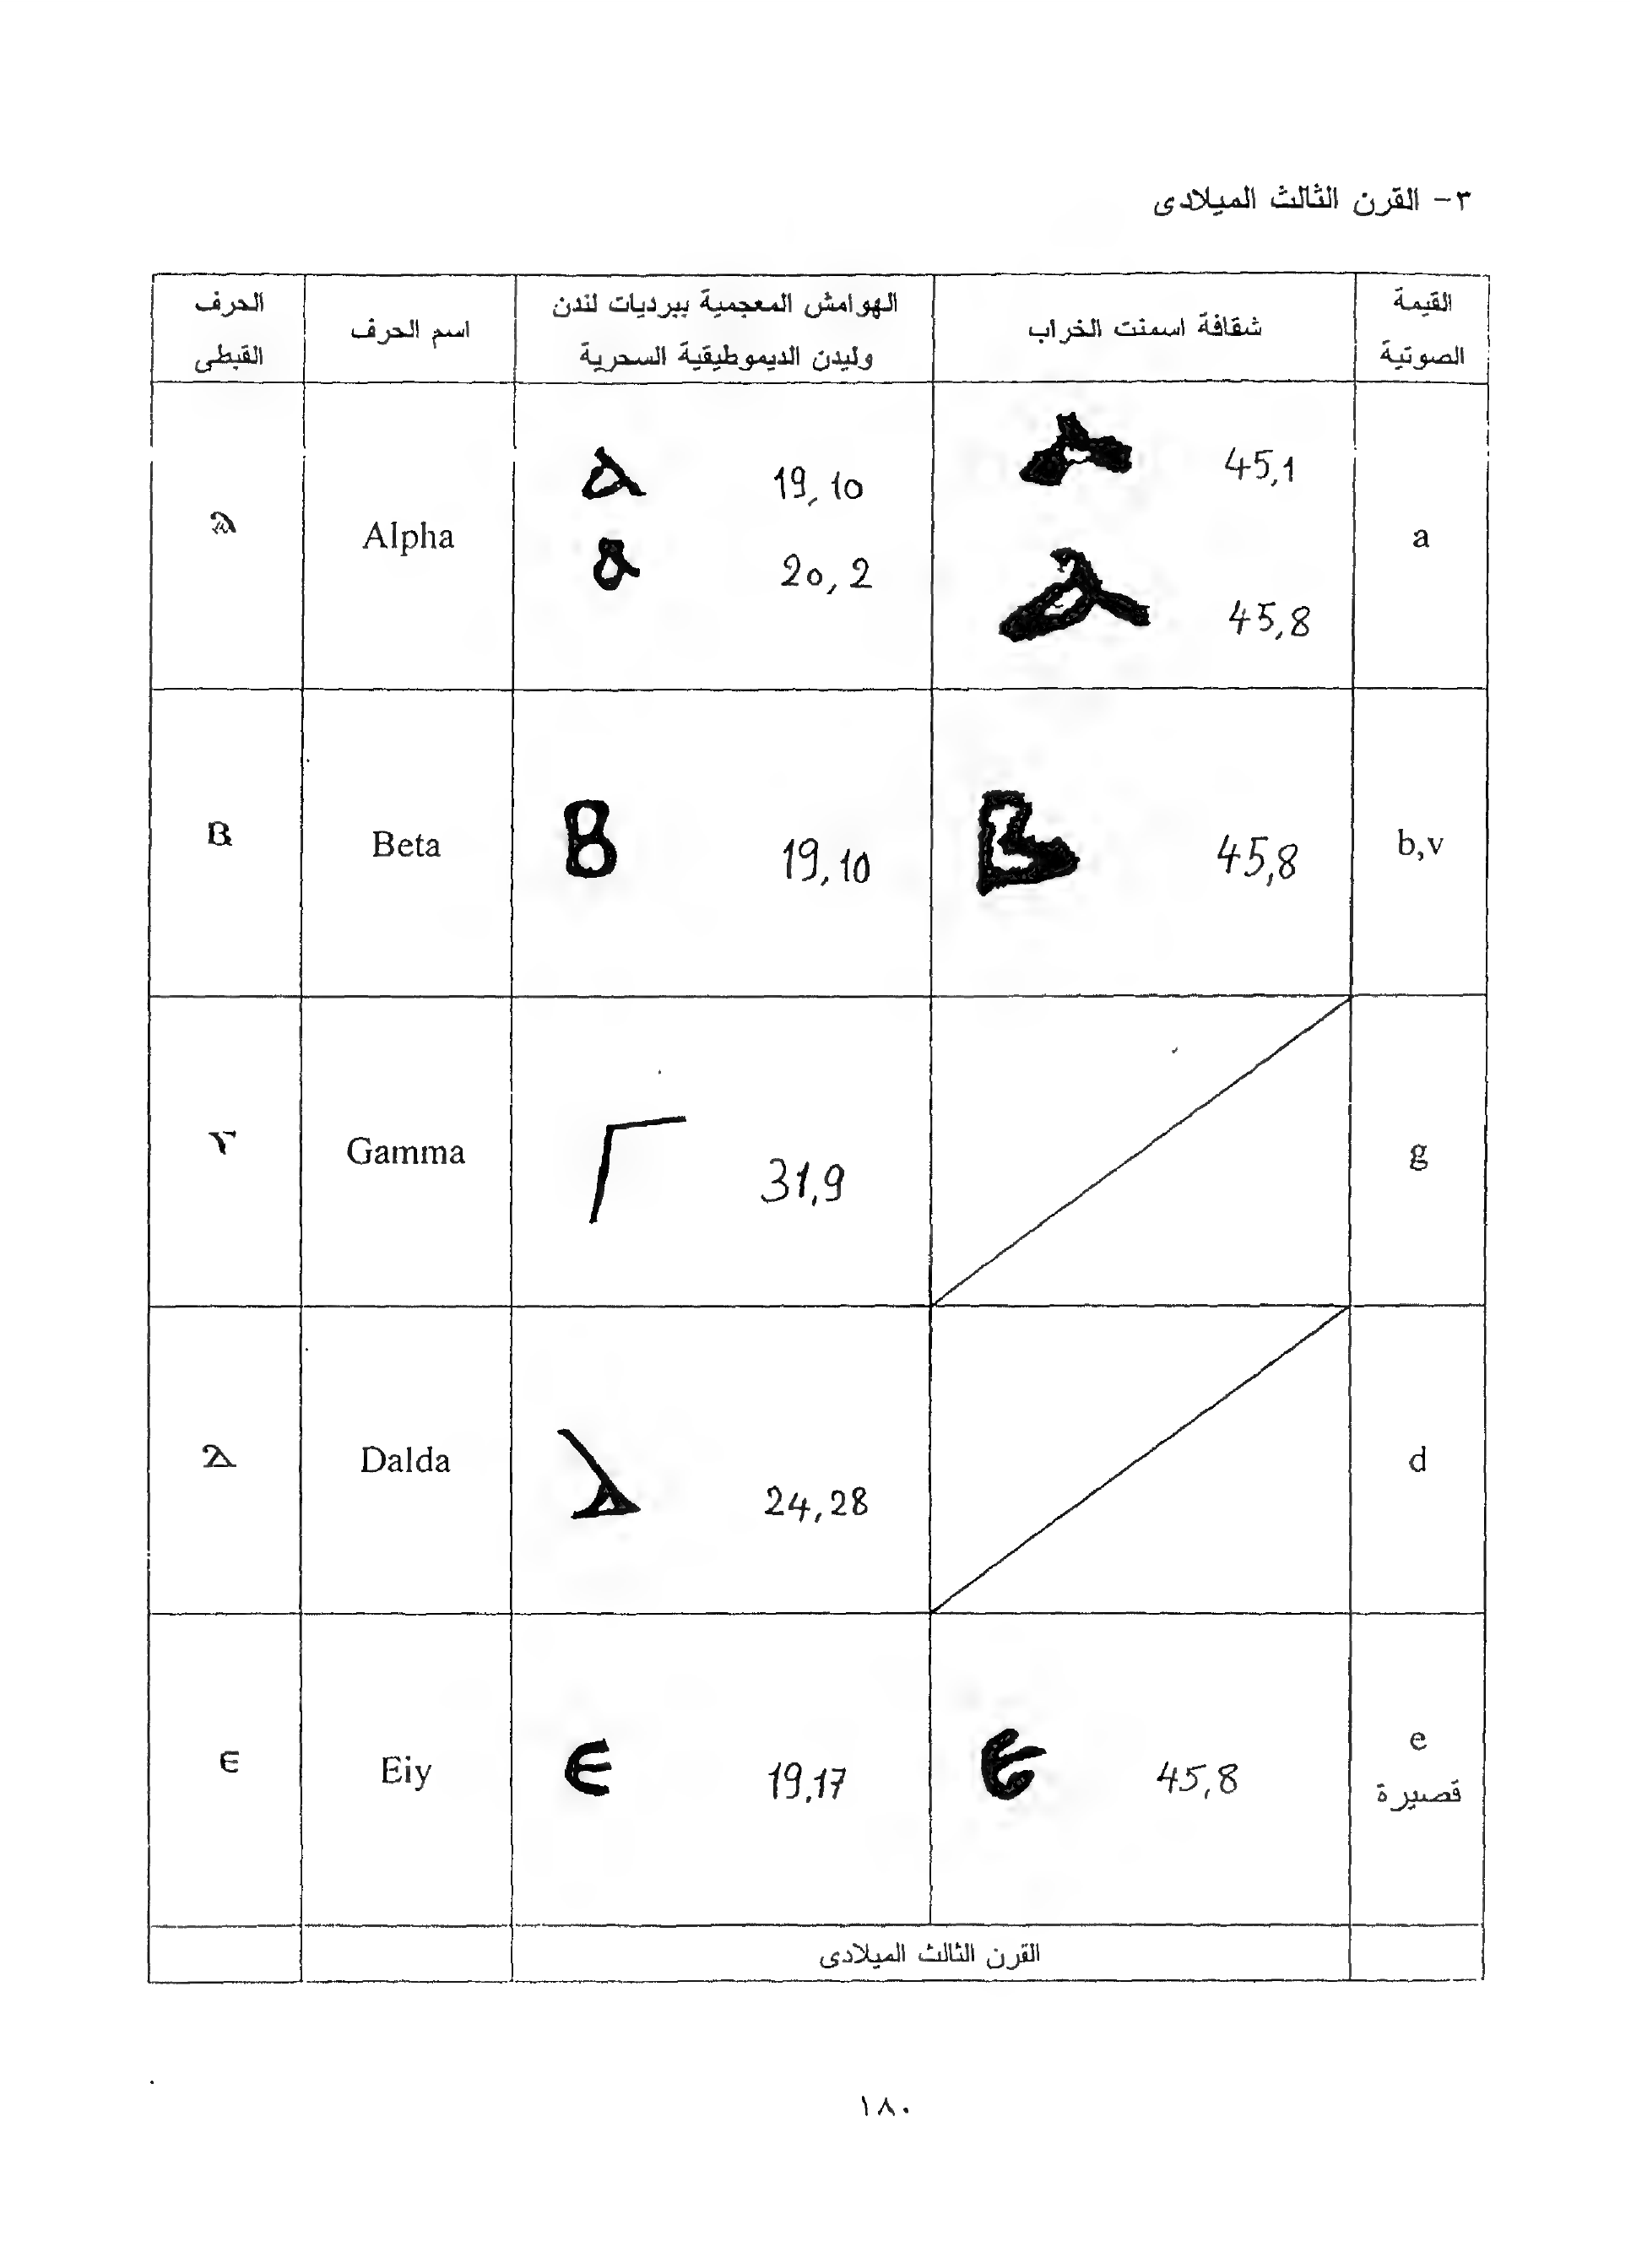 ٣- القرن الثالث الميلادى
القيمة الصوتية | شقافة اسمنت الخراب | الهوامش المعجمية ببرديات لندن وليدن الديموطيقية السحرية | اسم الحرف | الحرف القبطى
a | 45,1 | 19,10 | Alpha | ⲁ
45,8 | 20,2
b,v | Ⲃ 45,8 | Ⲃ 19,10 | Beta | Ⲃ
g | Ⲅ 31,9 | Gamma | ⲅ
d | 24,28 | Dalda | ⲇ
e قصيرة | ⲉ 45,8 | ⲉ 19,17 | Eiy | ⲉ
القرن الثالث الميلادى
١٨٠